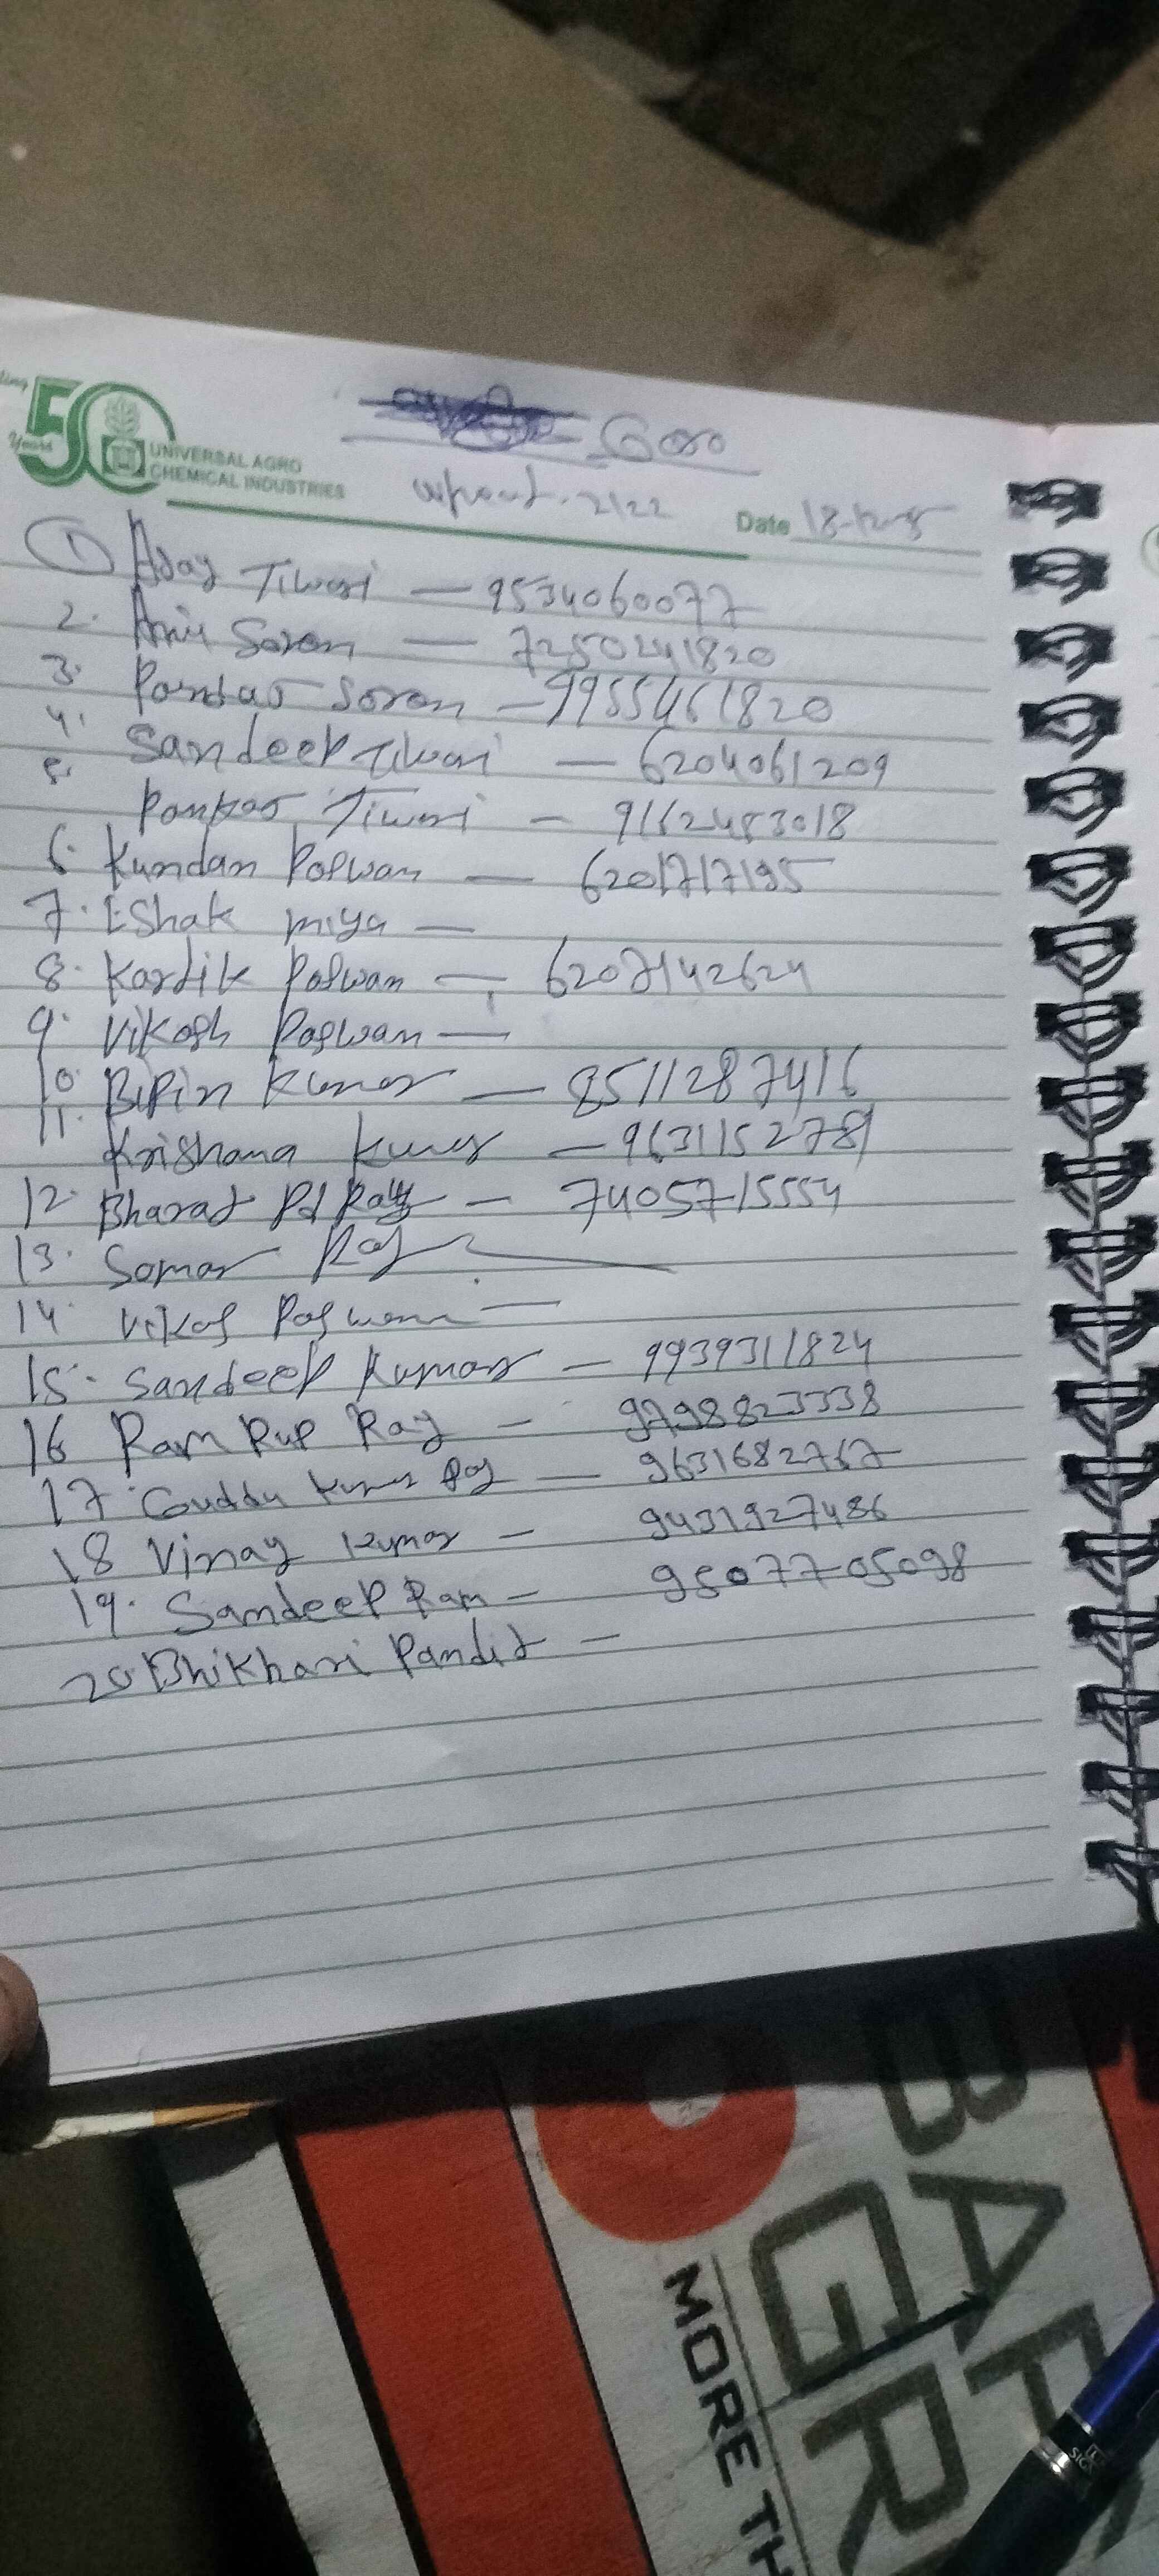 50
Years
UNIVERSAL AGRO
CHEMICAL INDUSTRIES
2122
Date 18-12-
① Ajay Tiwari — 9534060077
2. Soren — 7250241820
3. Soren — 9955461820
4. Sandeep Tiwari — 6204061209
5. Pankaj Tiwari — 9162483018
6. Kundan Paswan — 6201717195
7. Eshak miya —
8. Kardik Paswan — 6207142624
9. Vikash Paswan —
10. Bipin Kumar — 8511287416
11. Krishana Kumar — 9631152781
12. Bharat Pd Ray — 7405715554
13. Somar Raj
14. Vikas Paswan —
15. Sandeep Kumar — 9939311824
16 Ram Rup Ray — 9798823338
17. Guddu Kumar Raj — 9631682767
18 Vinay Kumar — 9431927486
19. Sandeep Ram — 9507705098
20 Bhikhari Pandit —
BAR
GR
MORE TH